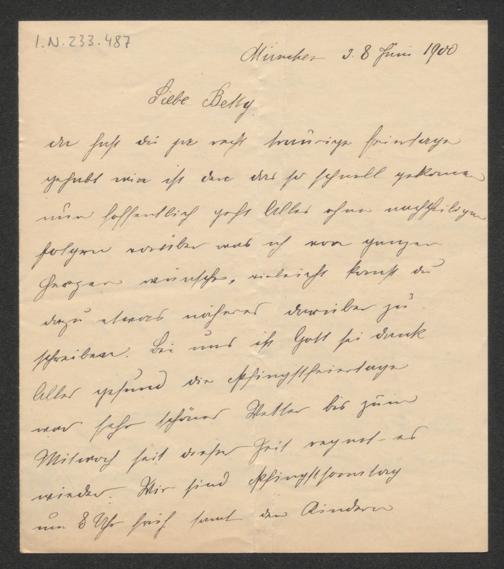 I.N. 233.487
München d. 8 Juni 1900
Liebe Betty
da hast du ja recht traurige Feiertage
gehabt wie ist den das so schnell gekommen
nun hoffentlich geht Alles ohne nachteiligen
folgen vorüber was ich von ganzen
Herzen wünsche, vieleicht kanst du
dazu etwas näheres darüber zu
schreiben. Bei uns ist Gott sei dank
Alles gesund die Pfingstfeiertage
war sehr schönes Wetter bis zum
Mitwoch seit dieser Zeit regnet es
wieder. Wir sind Pfingstsonntag
um 8 Uhr früh samt den Kindern